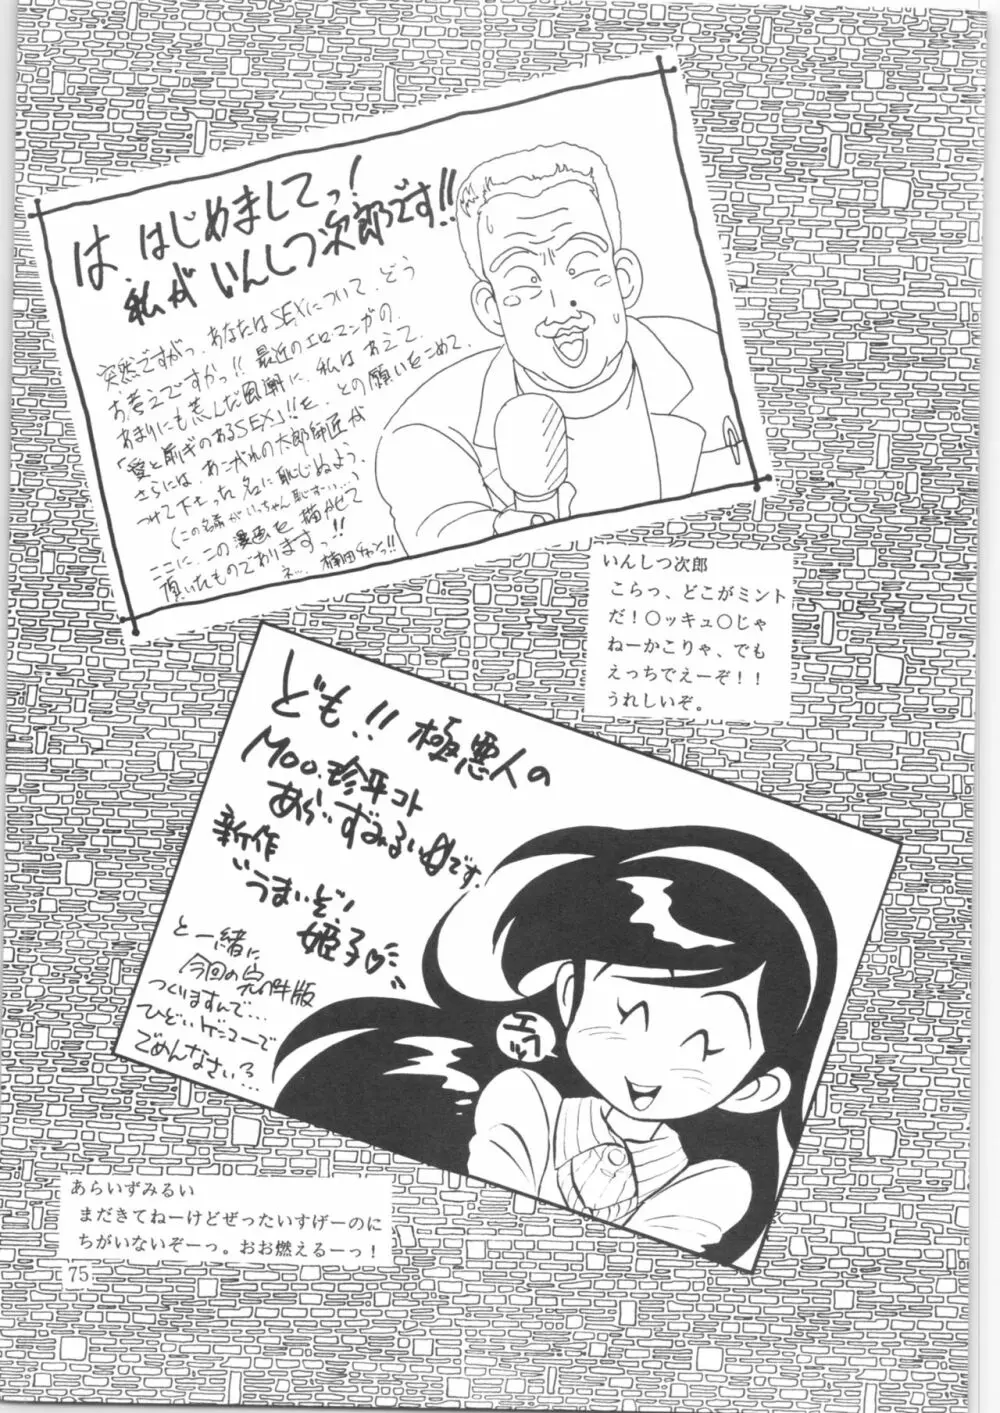 は、はじめましてっ!
私がいんしつ次郎です!!
突然ですがっ、あなたはSEXについて、どう
お考えですかっ!!最近のエロ・マンガの、
あまりにも荒んだ風潮に、私はあえて、
「愛と安らぎのあるSEX」!!を、との願いをこめて、
さらには、あこがれの太郎師匠が
つけて下さった名に恥じぬよう、
(この名前がいっちゃん恥ずい…)
ここに、この漫画を描かせて
頂いたものでありますっ!!
ネッ、楠田チャンっ!!
いんしつ次郎
こらっ、どこがミント
だ!〇ッキュ〇じゃ
ねーかこりゃ、でも
えっちでえーぞ!!
うれしいぞ。
ども!!極悪人の
Moo.珍平コト
あらいずみるいです。
新作
"うまいぞ!
姫子♡"
と一緒に
今回の完全版
つくりますんで…
ひどいゲンコーで
ごめんなさい?…
エヘッ
あらいずみるい
まだきてねーけどぜったいすげーのに
ちがいないぞーっ。おお燃えるーっ!
75